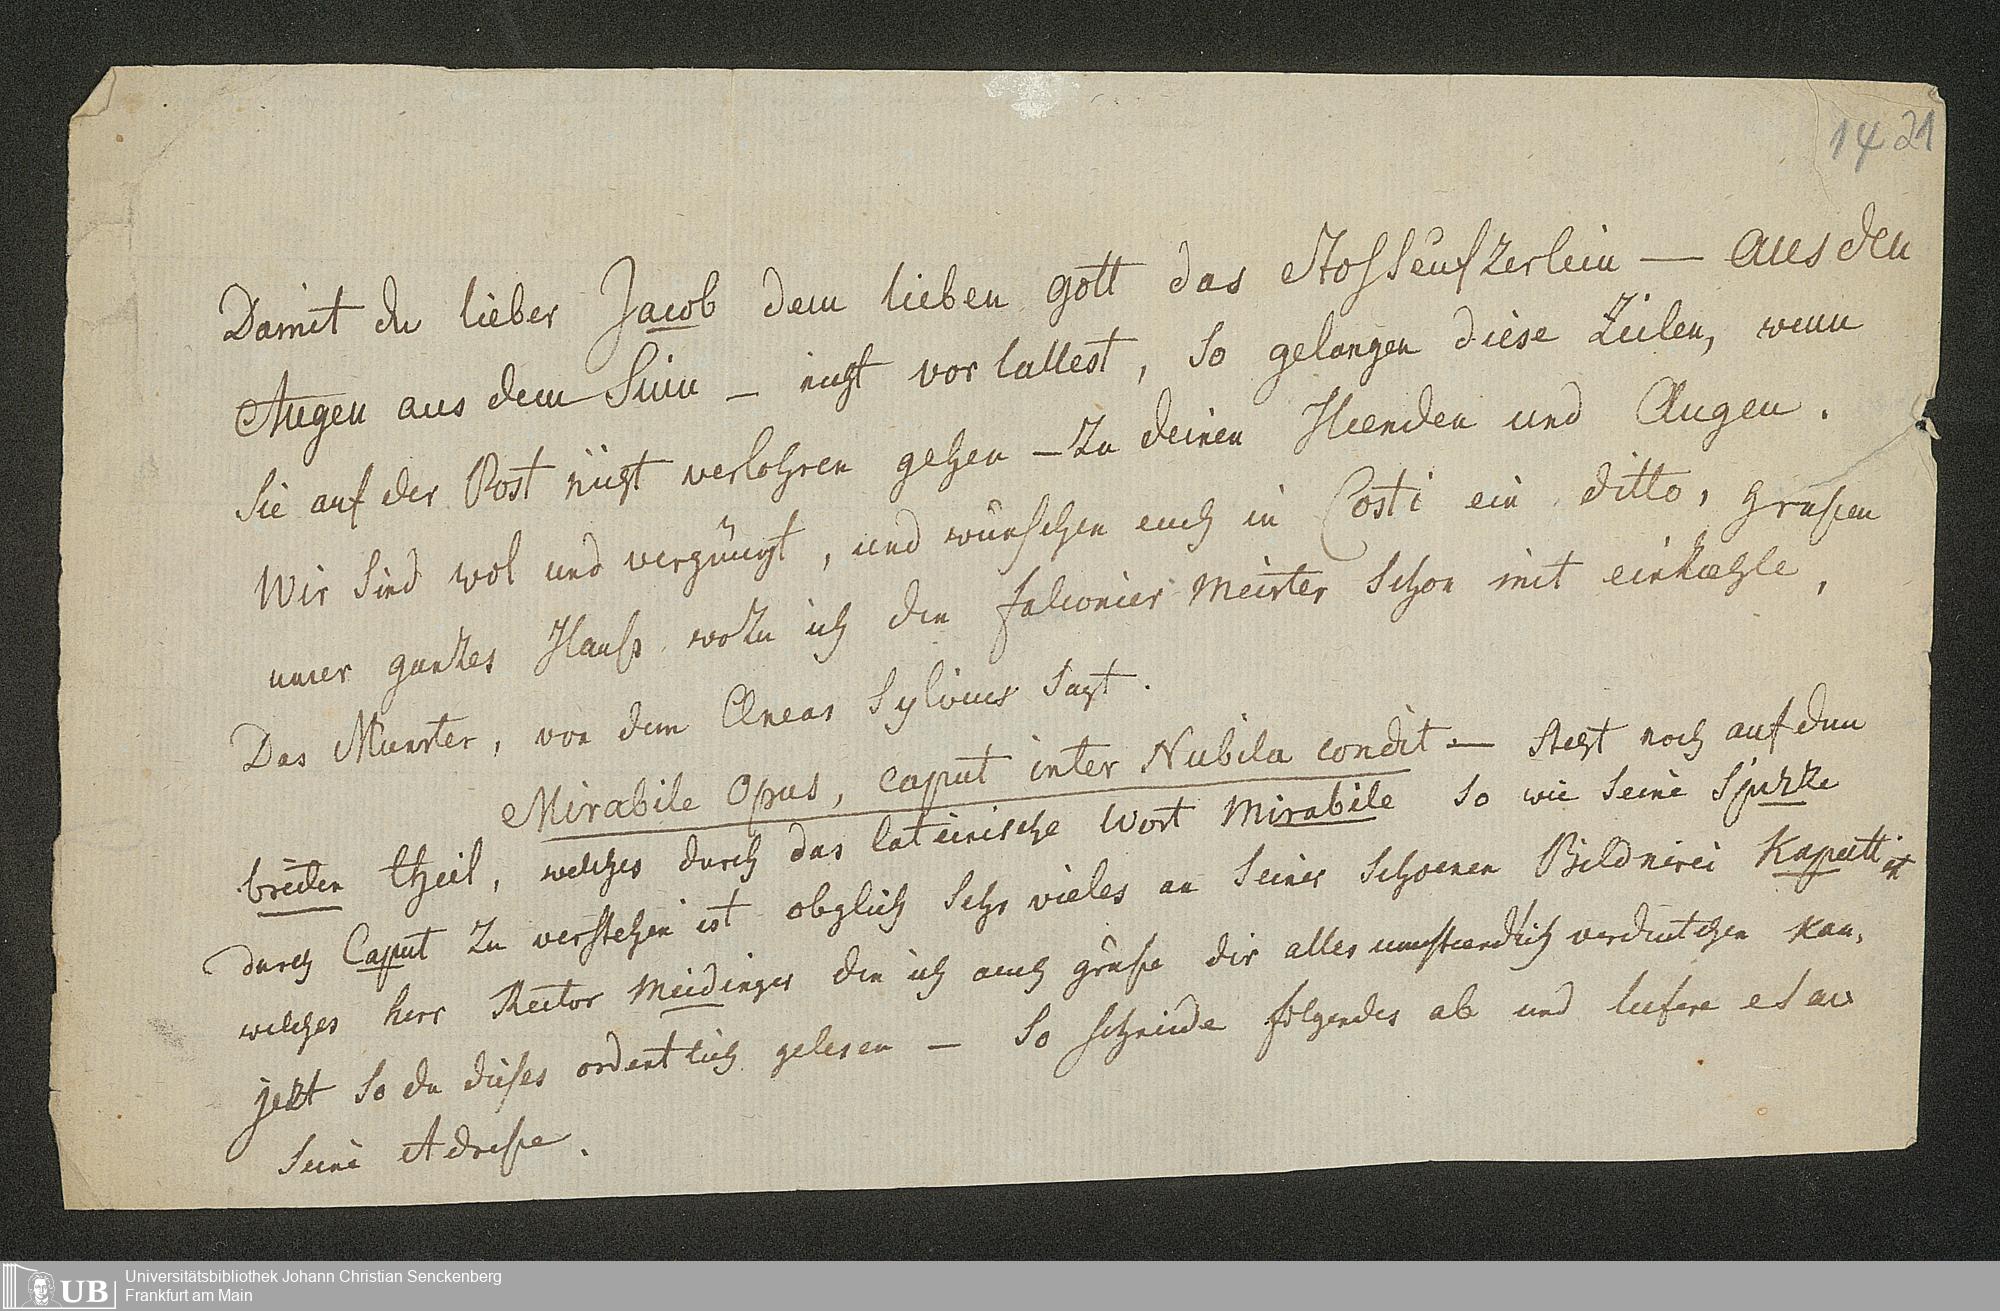 1421
Damit du lieber Jacob dem lieben gott das Stosseufzerlein — Aus den
Augen aus dem Sinn — nicht vorlallest, so gelangen diese Zeilen, wenn
Sie auf der Post nicht verlohren gehen — zu deinen Haenden und Augen.
Wir sind wol und vergnügt, und wünschen euch in Costi ein ditto, grusen
unser gantzes Hauß wozu ich den falconier Meister schon mit einkaehle,
Das Munster, von dem Æneas Sylvius sagt.
Mirabile Opus, caput inter Nubila condit — steht noch auf dem
breiten theil, welches durch das lateinische Wort Mirabile so wie seine Spitze
durch Caput zu verstehen ist obglich sehr vieles an seiner schoenen Bildnerei Kaputt ist
welches herr Rector Meidinger den ich auch grüse dir alles umstaendlich verdeutschen kan,
jetzt so du dieses ordentlich gelesen — so schneide folgendes ab und liefere es an
seine Adresse.
Universitätsbibliothek Johann Christian Senckenberg
UB Frankfurt am Main